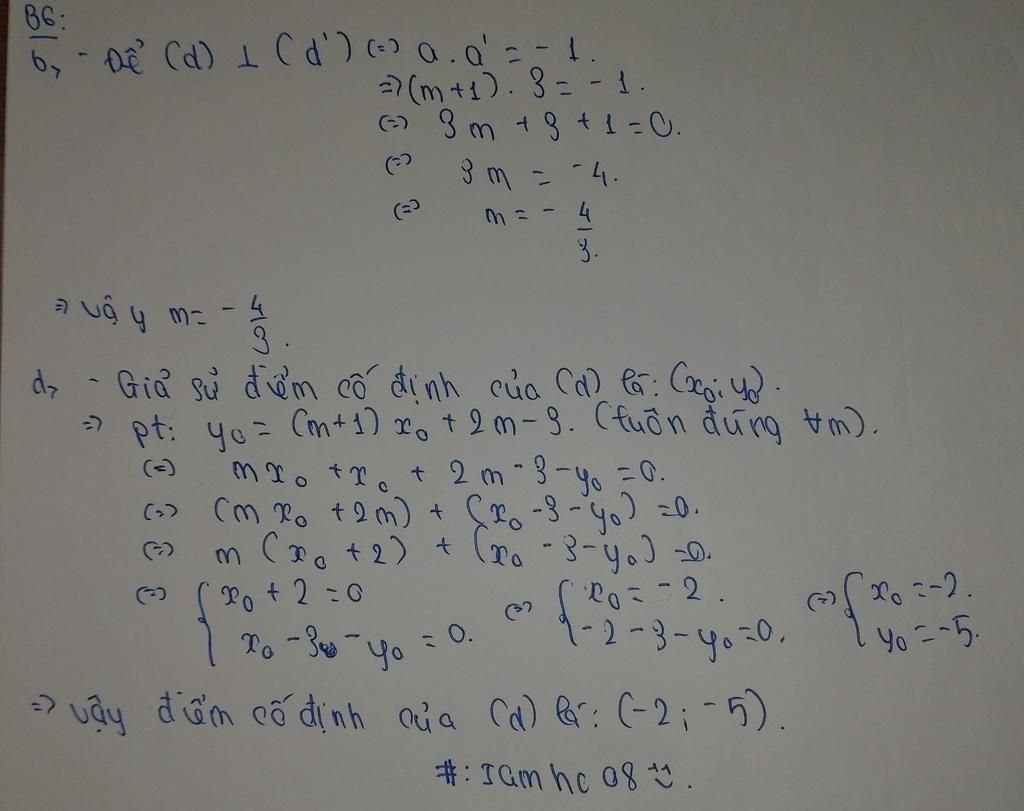 B6:
b, - Để (d) ⊥ (d') (=) a.a' = -1.
=> (m+1). 3 = -1.
(=) 3m + 3 + 1 = 0.
(=) 3m = -4.
(=) m = - 4/3.
=> Vậy m = - 4/3.
d, - Giả sử điểm cố định của (d) là: (x₀; y₀).
=> pt: y₀ = (m+1) x₀ + 2m - 3. (luôn đúng ∀m).
(=) mx₀ + x₀ + 2m - 3 - y₀ = 0.
(=) (mx₀ + 2m) + (x₀ - 3 - y₀) = 0.
(=) m (x₀ + 2) + (x₀ - 3 - y₀) = 0.
(=) { x₀ + 2 = 0 (=) { x₀ = -2. (=) { x₀ = -2.
x₀ - 3 - y₀ = 0. -2 - 3 - y₀ = 0. y₀ = -5.
=> Vậy điểm cố định của (d) là: (-2; -5).
#: Iamhc 08